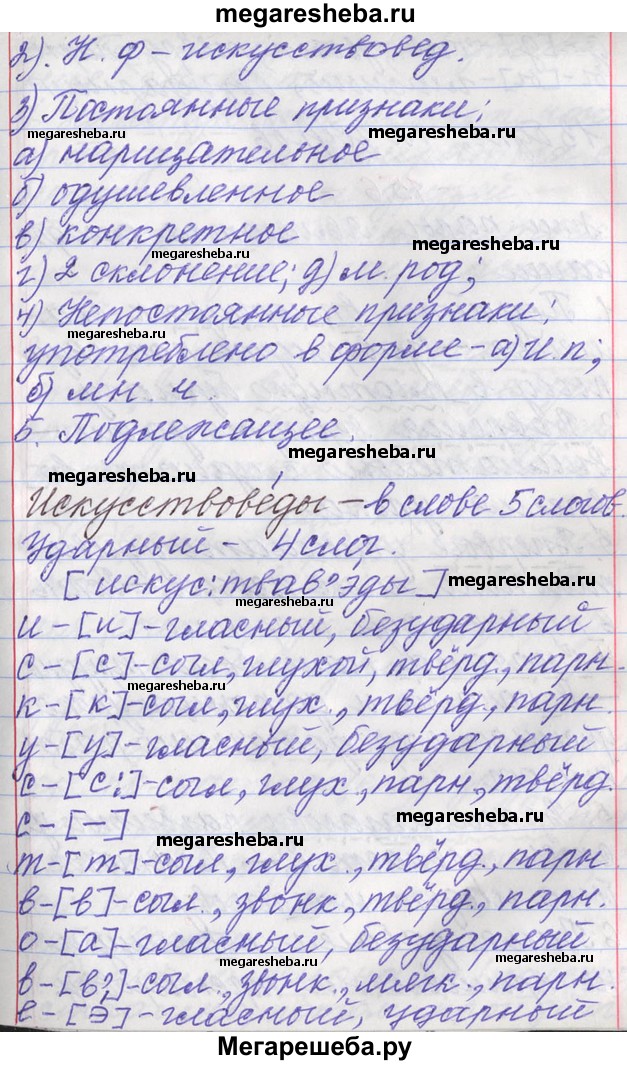 megaresheba.ru
2). Н. ф – искусствовед.
3) Постоянные признаки:
megaresheba.ru
megaresheba.ru
а) нарицательное
б) одушевленное
в) конкретное
megaresheba.ru
megaresheba.ru
г) 2 склонение; д) м. род;
4) Непостоянные признаки:
megaresheba.ru
употреблено в форме – а) И. п;
б) мн. ч.
megaresheba.ru
5. Подлежащее.
megaresheba.ru
megaresheba.ru
Искусствове́ды – в слове 5 слогов.
Ударный – 4 слог.
[искус:твав'эды]
megaresheba.ru
megaresheba.ru
и – [и] – гласный, безударный
с – [с] – согл, глухой, твёрд., парн.
megaresheba.ru
к – [к] – согл, глух., твёрд., парн.
у – [у] – гласный, безударный
с – [с:] – согл, глух, парн, твёрд.
megaresheba.ru
с – [–]
megaresheba.ru
т – [т] – согл, глух., твёрд., парн
в – [в] – согл., звонк., твёрд., парн.
о – [а] – гласный, безударный
megaresheba.ru
megaresheba.ru
в – [в'] – согл., звонк., мягк., парн.
е – [э] – гласный, ударный
Мегарешеба.ру